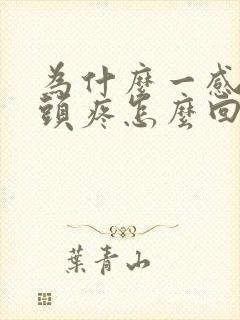 為什麼一感
頭疼怎麼回
葉青山